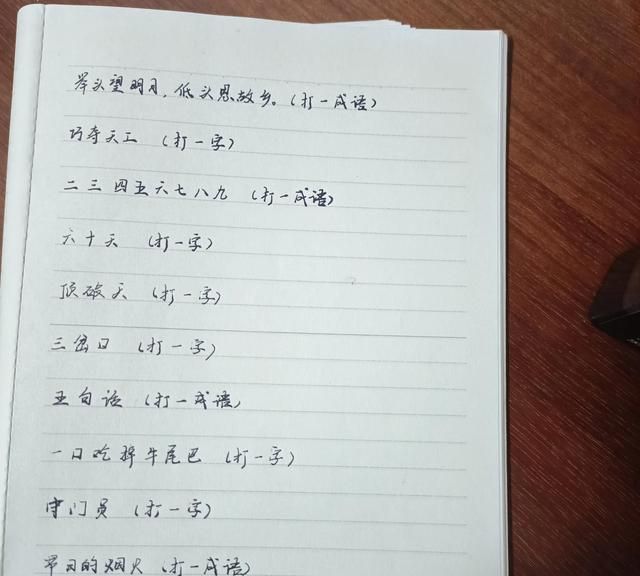 举头望明月，低头思故乡。（打一成语）
巧夺天工（打一字）
二三四五六七八九（打一成语）
六十天（打一字）
顶破天（打一字）
三岔日（打一字）
五句话（打一成语）
一口吃掉牛尾巴（打一字）
守门员（打一字）
节日的烟火（打一成语）